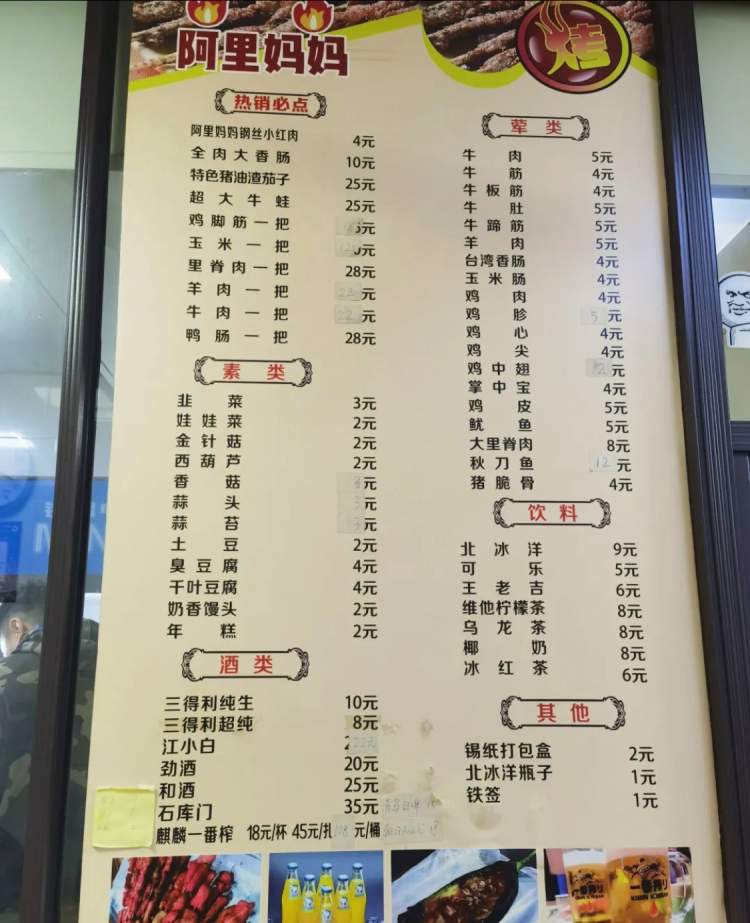 阿里妈妈
烤
热销必点
阿里妈妈钢丝小红肉 4元
全肉大香肠 10元
特色猪油渣茄子 25元
超大牛蛙 25元
鸡脚筋一把 元
玉米一把 元
里脊肉一把 28元
羊肉一把 22元
牛肉一把 22元
鸭肠一把 28元
素类
韭菜 3元
娃娃菜 2元
金针菇 2元
西葫芦 2元
香菇 元
蒜头 元
蒜苔 元
土豆 2元
臭豆腐 4元
千叶豆腐 4元
奶香馒头 2元
年糕 2元
酒类
三得利纯生 10元
三得利超纯 8元
江小白
劲酒 20元
和酒 25元
石库门 35元
麒麟一番榨 18元/杯 45元/扎 元/桶
荤类
牛肉 5元
牛筋 4元
牛板筋 4元
牛肚 5元
牛蹄筋 5元
羊肉 5元
台湾香肠 4元
玉米肠 4元
鸡肉 4元
鸡胗 5元
鸡心 4元
鸡尖 4元
鸡中翅 元
掌中宝 4元
鸡皮 5元
鱿鱼 5元
大里脊肉 8元
秋刀鱼 12元
猪脆骨 4元
饮料
北冰洋 9元
可乐 5元
王老吉 6元
维他柠檬茶 8元
乌龙茶 8元
椰奶 8元
冰红茶 6元
其他
锡纸打包盒 2元
北冰洋瓶子 1元
铁签 1元